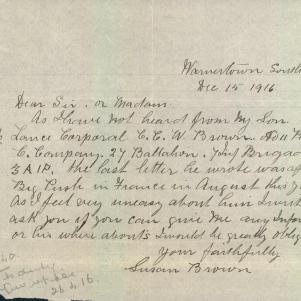 Warnertown South
Dec 15 1916
Dear Sir. or Madam.
As I have not heard from my Son.
Lance Corporal C. C. W. Brown.
C. Company. 27 Battalion. Brigad
3 A I F. the last letter he wrote was
Big Push in France in August this
As I feel very uneasy about him I
ask you if you can give me any
or his where abouts I would be greatly oblig
Your faithfully
Susan Brown
26.4.16.